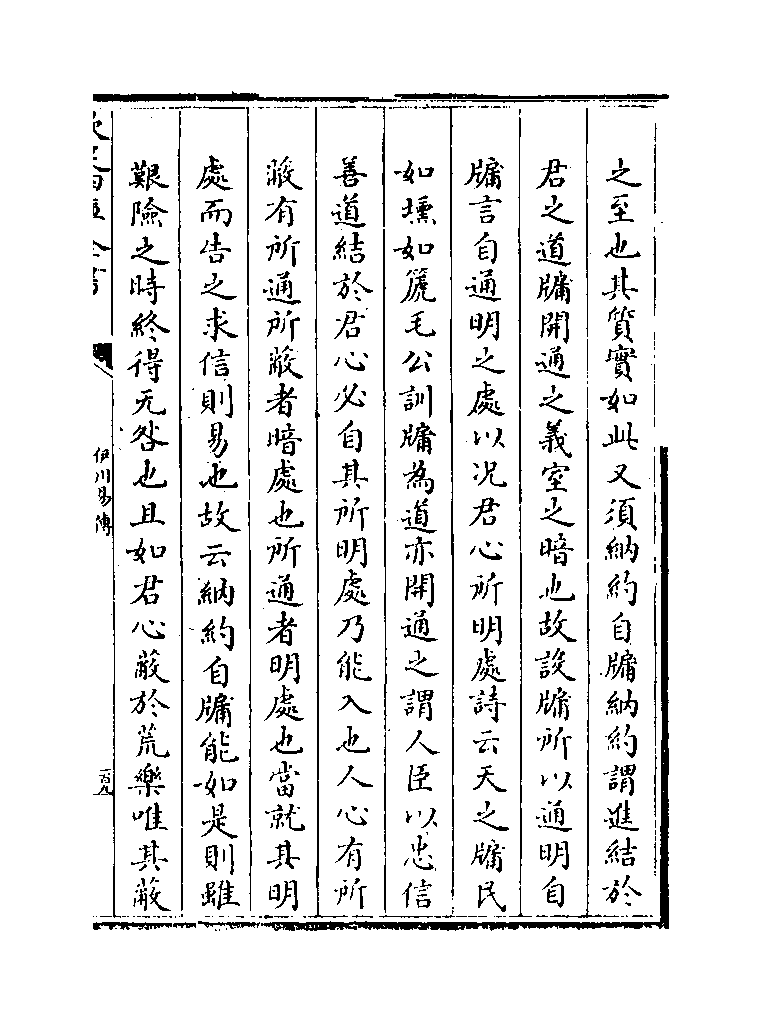 之至也其質實如此又須納約自牖納約謂進結於
君之道牖開通之義室之暗也故設牖所以通明自
牖言自通明之處以况君心所明處詩云天之牖民
如壎如篪毛公訓牖為道亦開通之謂人臣以忠信
善道結於君心必自其所明處乃能入也人心有所
蔽有所通所蔽者暗處也所通者明處也當就其明
處而告之求信則易也故云納約自牖能如是則雖
艱險之時終得无咎也且如君心蔽於荒樂唯其蔽
伊川易傳
一百九